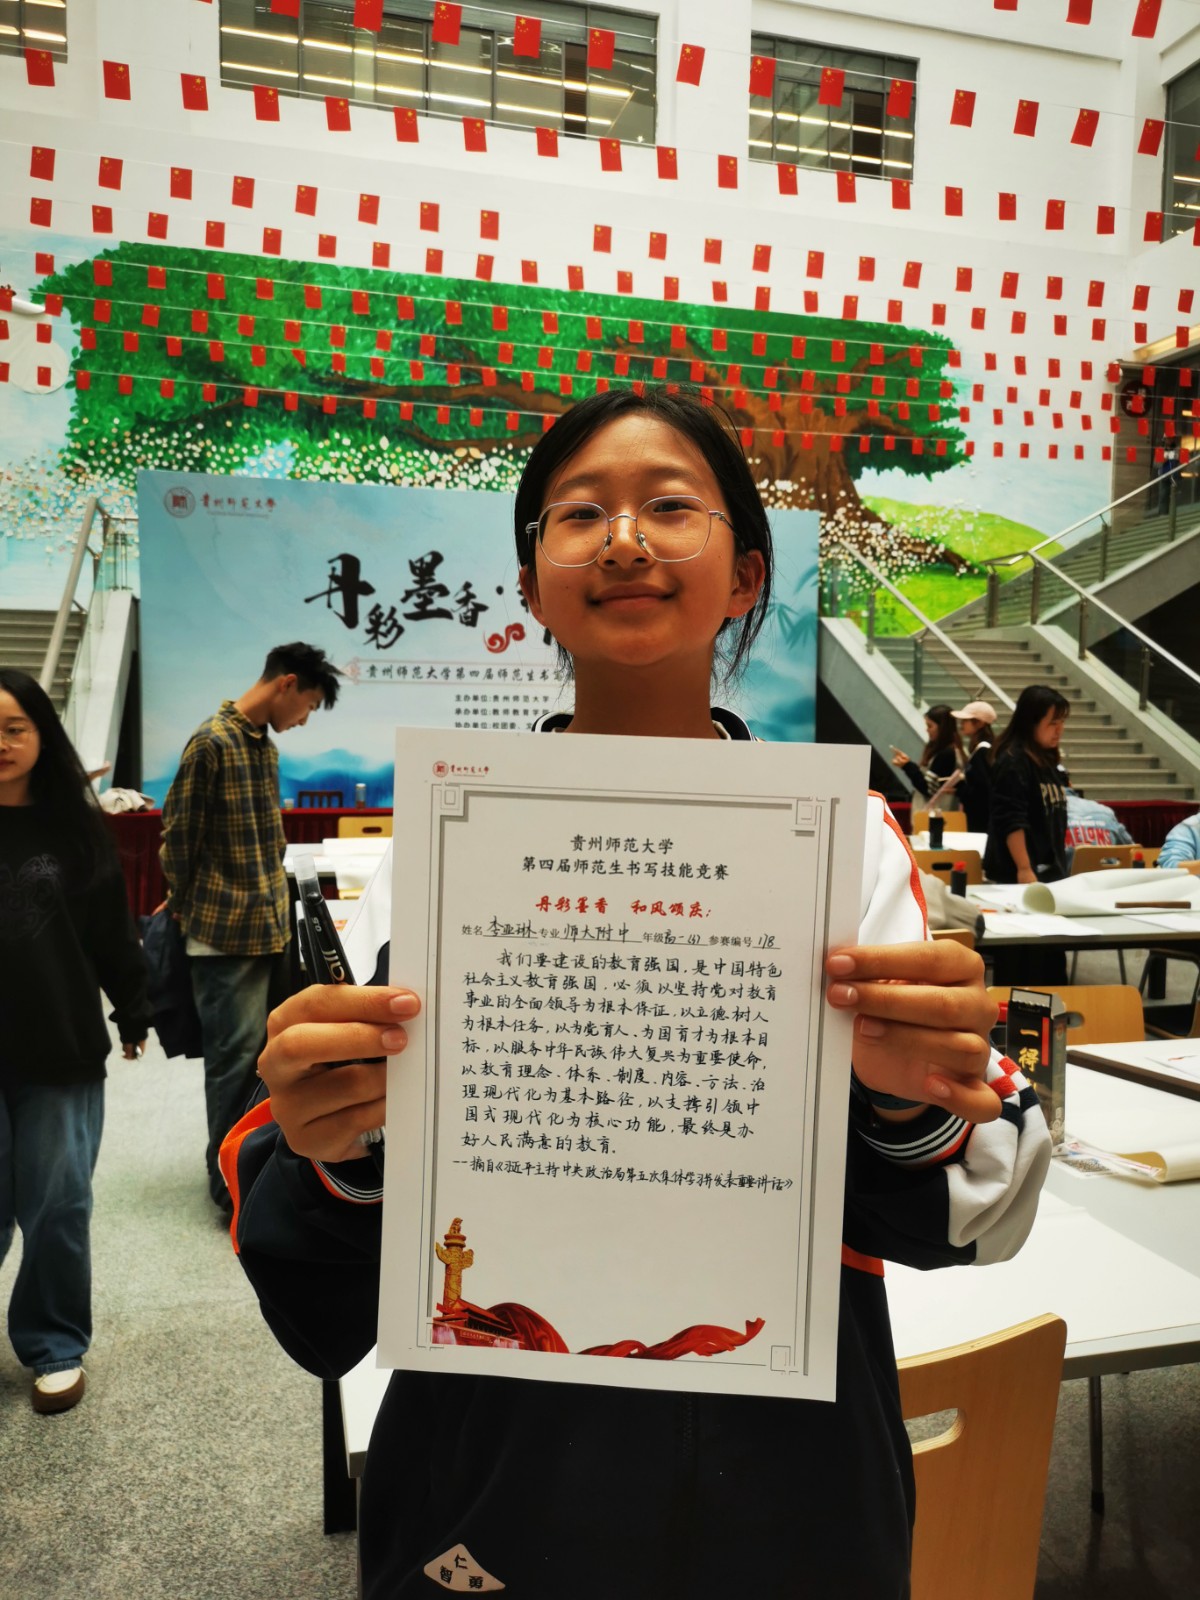 贵州师范大学
丹彩墨香·
贵州师范大学第四届师范生书写
主办单位:贵州师范大学
承办单位:教师教育学院
协办单位:校团委、文
贵州师范大学
贵州师范大学
第四届师范生书写技能竞赛
丹彩墨香 和风颂辰:
姓名 李亚琳 专业 师大附中 年级 高一(4) 参赛编号 178
我们要建设的教育强国,是中国特色
社会主义教育强国,必须以坚持党对教育
事业的全面领导为根本保证,以立德树人
为根本任务,以为党育人、为国育才为根本目
标,以服务中华民族伟大复兴为重要使命,
以教育理念、体系、制度、内容、方法、治
理现代化为基本路径,以支撑引领中
国式现代化为核心功能,最终是办
好人民满意的教育.
--摘自《习近平主持中央政治局第五次集体学习并发表重要讲话》
一得
仁
智 勇